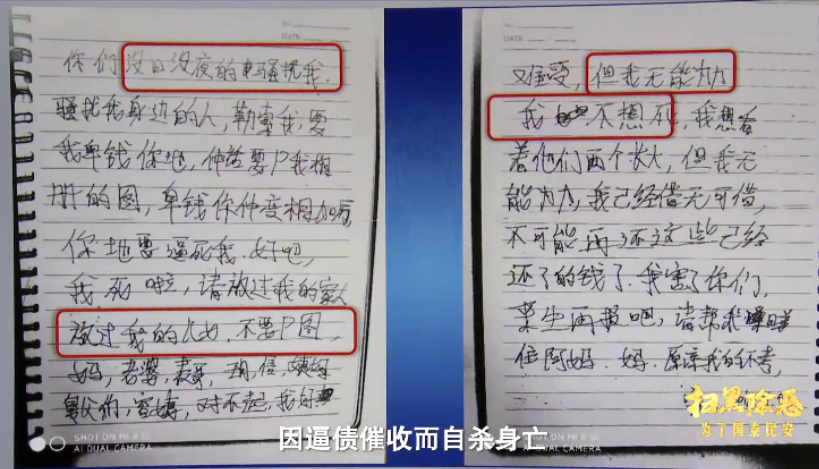 DATE
你们没日没夜的骚扰我.
骚扰我身边的人,勒索我,要
我卑钱你地,仲话要P我相
册的图,卑钱你仲变相加
你地要逼死我.好吧,
我死啦,请放过我的家人
放过我的儿女.不要P图,
妈,老婆,表哥,
对不起,我好
DATE
又难受,但我无能为力
我不想死,我想看
着他们两个长大,但我无
能为力,我已经借无可借,
不可能再还这些已经
还了的钱了.我害了你们,
来生再报吧,请帮我
住阿妈.妈.原谅我的不孝,
因逼债催收而自杀身亡
扫黑除恶
为了国泰民安
SHOT ON MI 8 SE
AI DUAL CAMERA
SHOT ON MI 8 SE
AI DUAL CAMERA